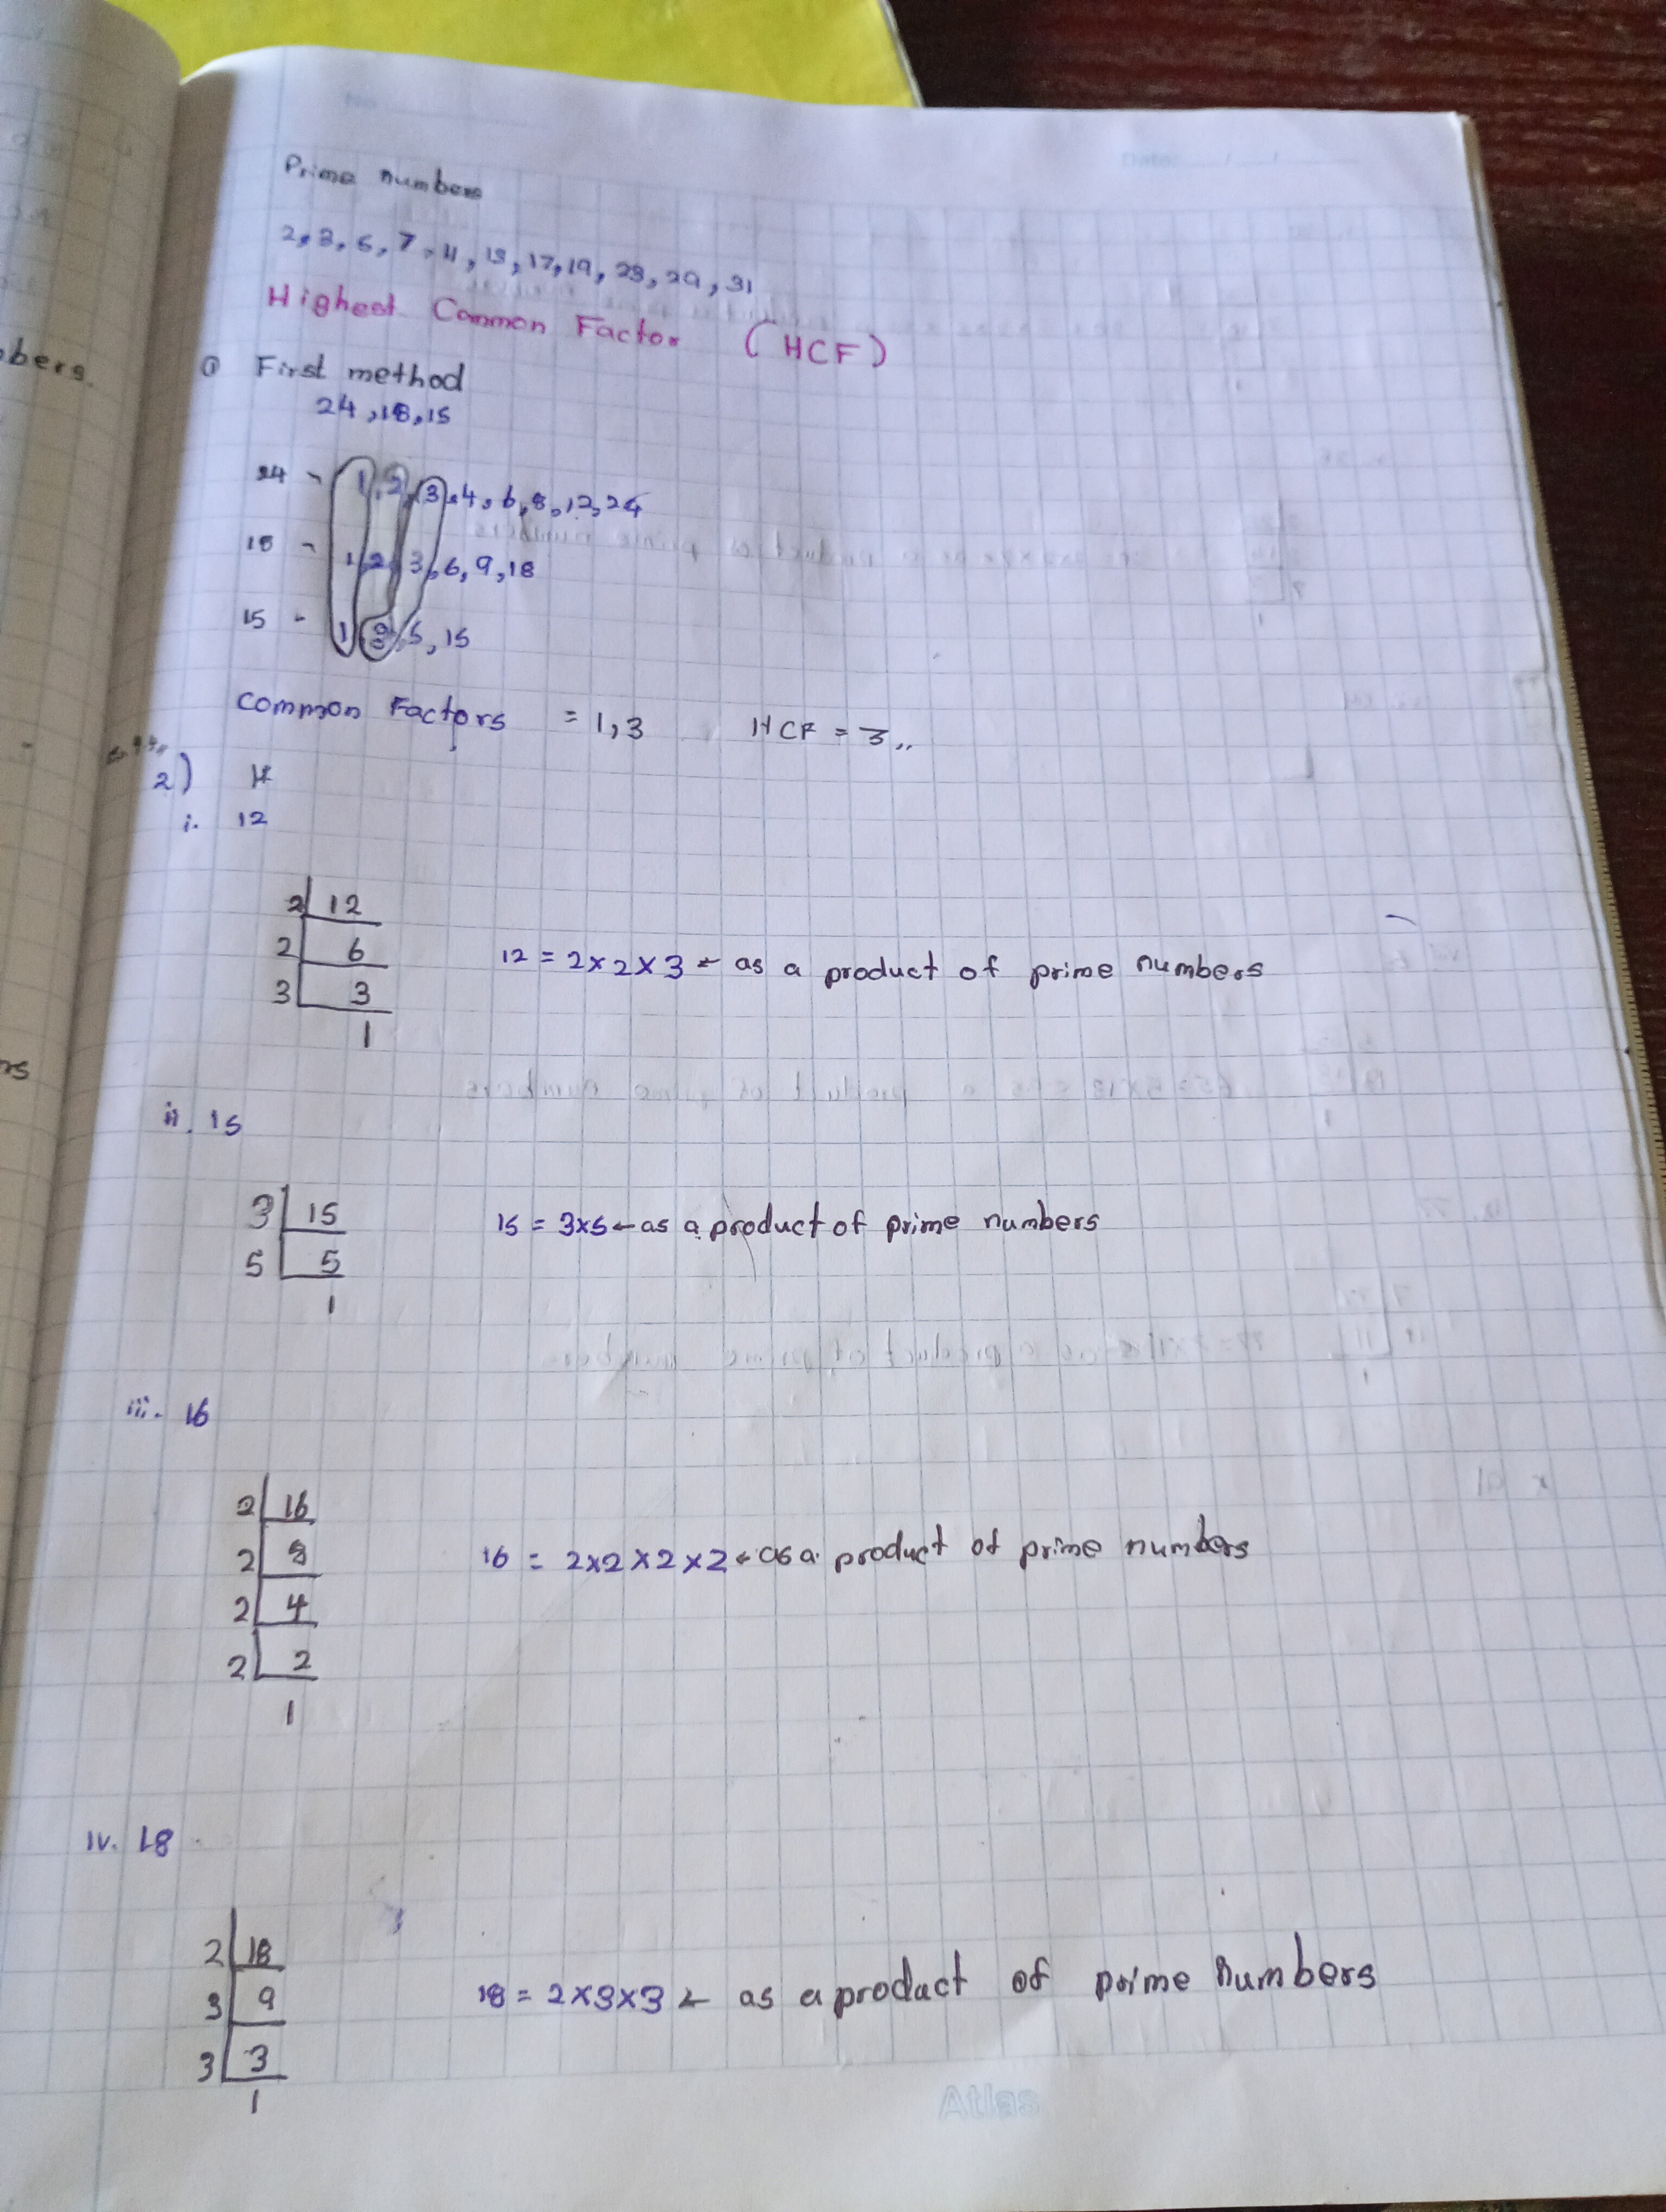 No
Date
Prime numbers
2, 3, 5, 7, 11, 13, 17, 19, 23, 29, 31
Highest Common Factor (HCF)
① First method
24, 18, 15
24 - 1, 2, 3, 4, 6, 8, 12, 24
18 - 1, 2, 3, 6, 9, 18
15 - 1, 3, 5, 15
Common Factors = 1, 3 HCF = 3
2)
i. 12
2 12
2 6
3 3
1
12 = 2 × 2 × 3 ← as a product of prime numbers
ii. 15
3 15
5 5
1
15 = 3 × 5 ← as a product of prime numbers
iii. 16
2 16
2 8
2 4
2 2
1
16 = 2 × 2 × 2 × 2 ← as a product of prime numbers
iv. 18
2 18
3 9
3 3
1
18 = 2 × 3 × 3 ← as a product of prime numbers
Atlas
bers.
rs